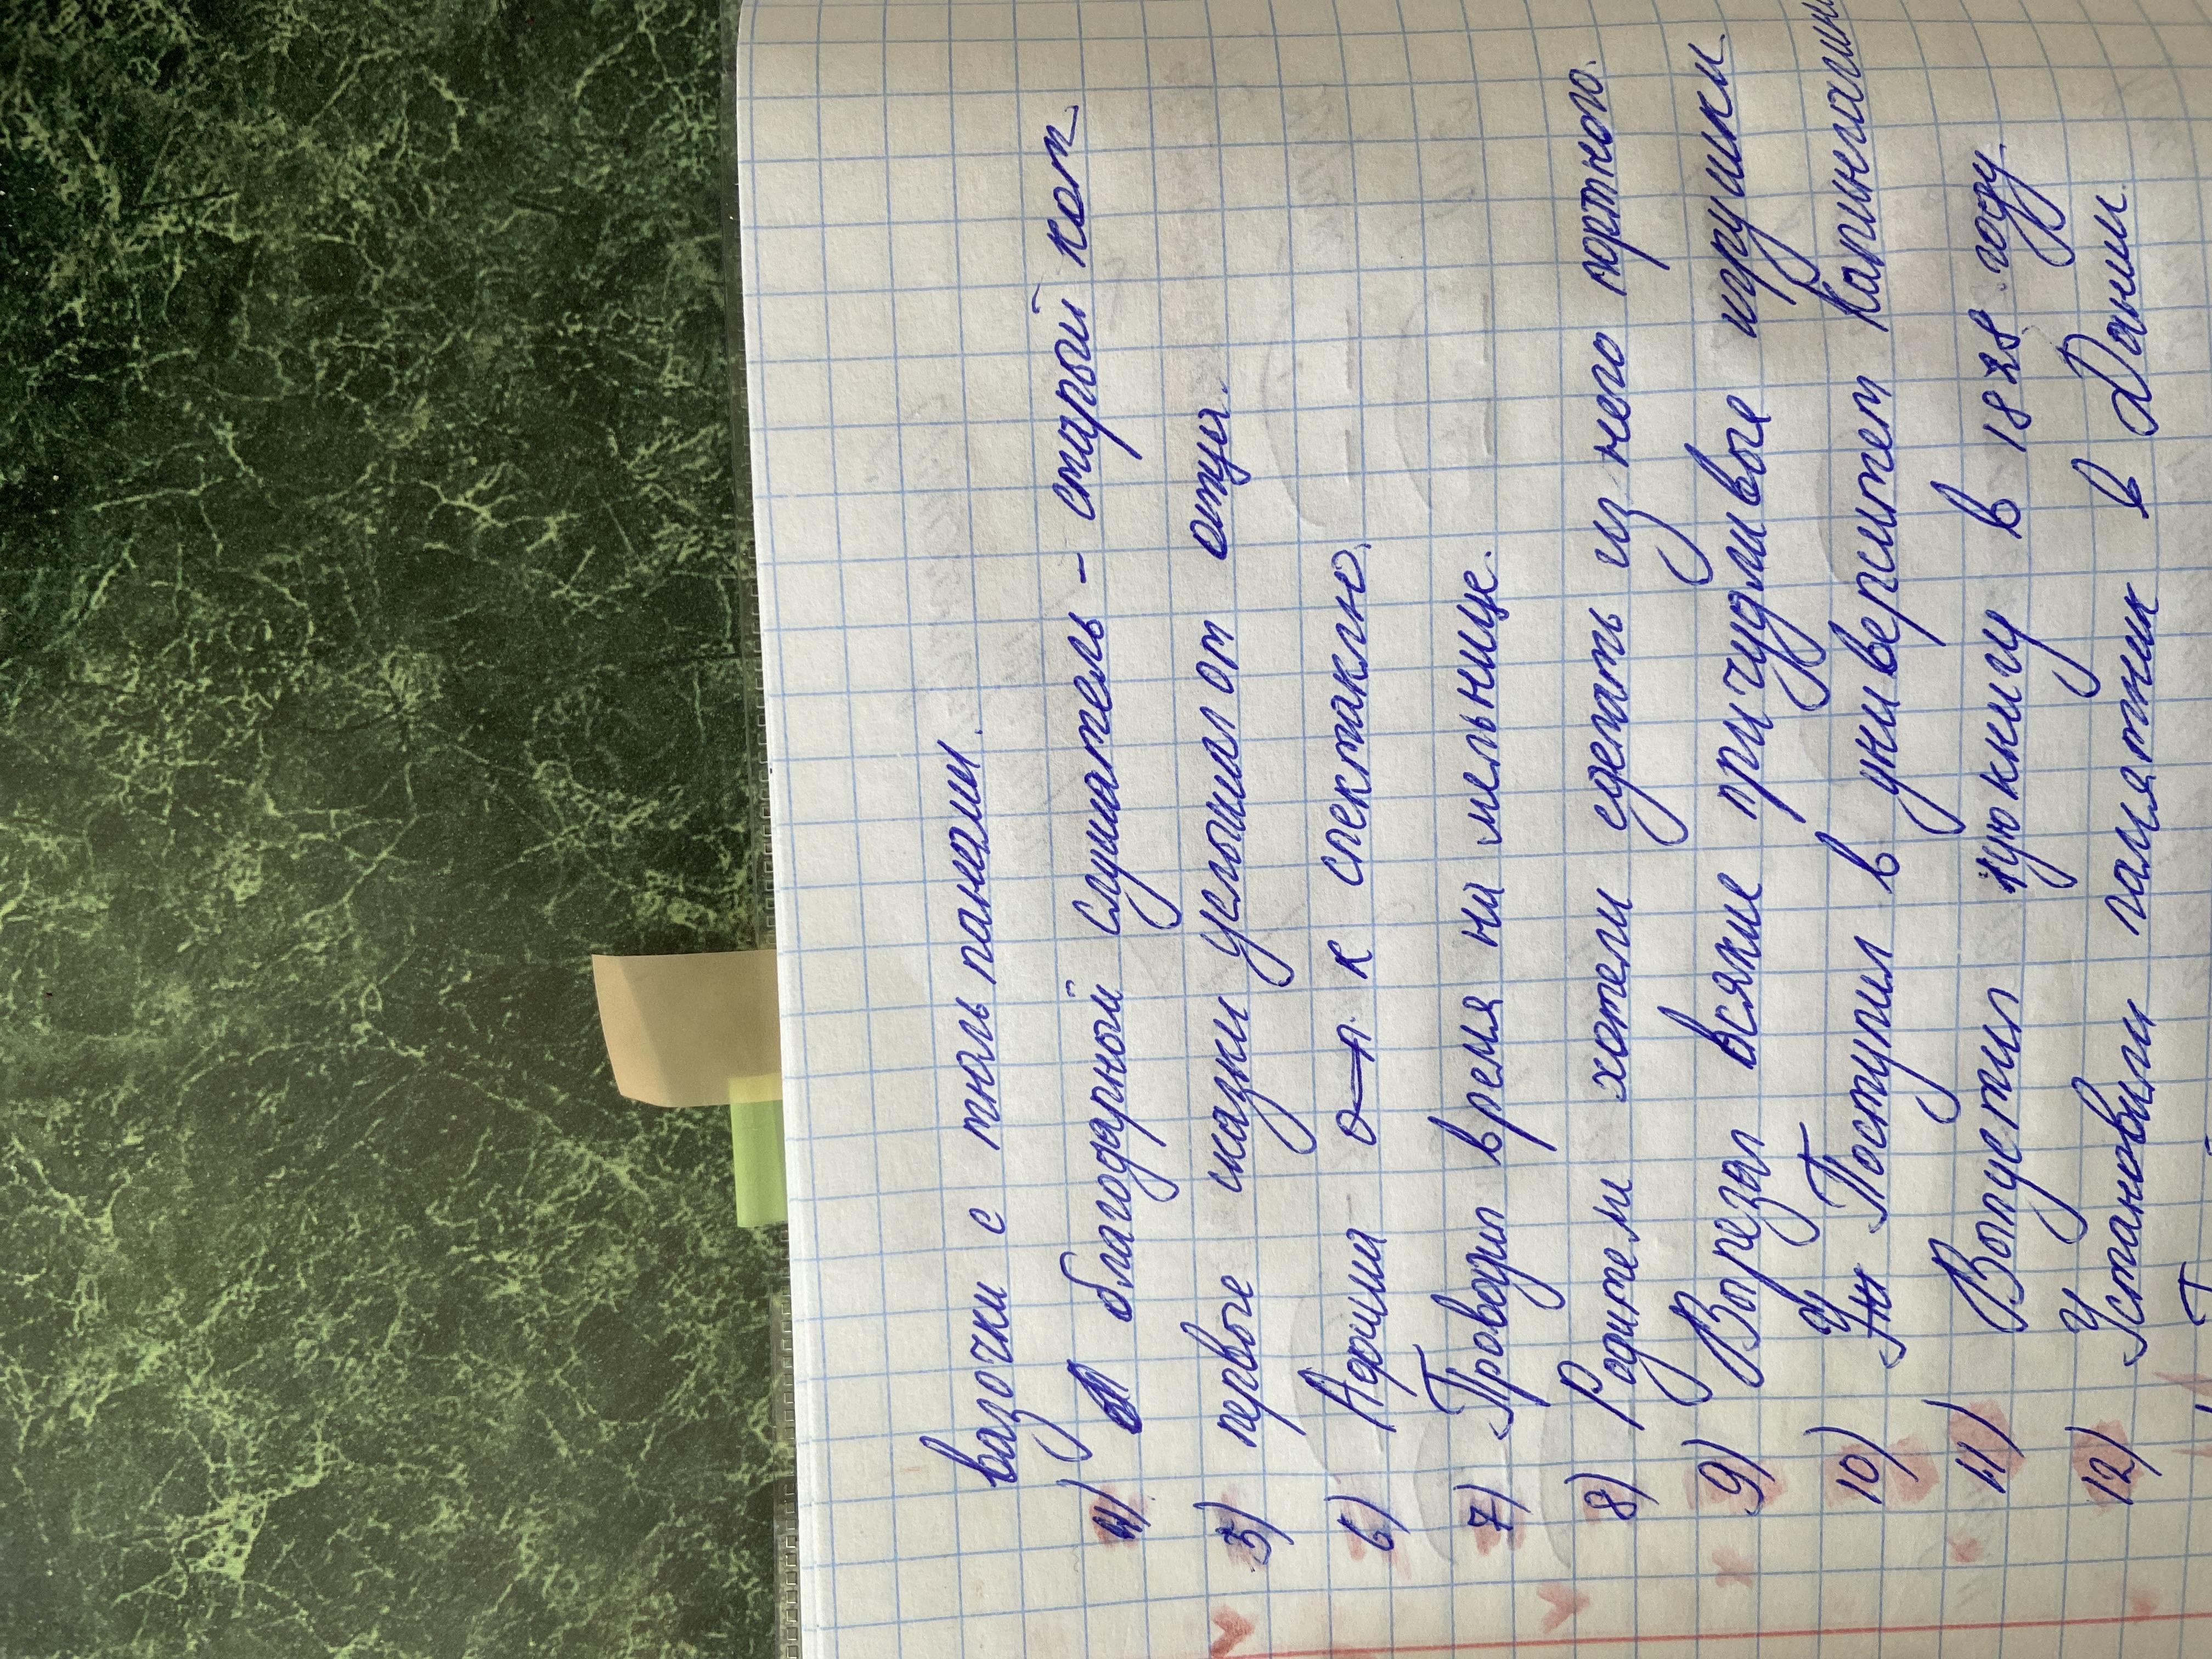 вазочки с тюльпанами.
4) благодарный слушатель - старый кот
5) первые сказки услышал от отца.
6) Афиши к спектаклю.
7) Проводил время на мельнице.
8) Родители хотели сделать из него портного.
9) Вырезал всякие причудливые игрушки
10) Поступил в университет Капингагин
11) Выпустил 1ую книгу в 1828 году
12) Установили памятник в Дании.